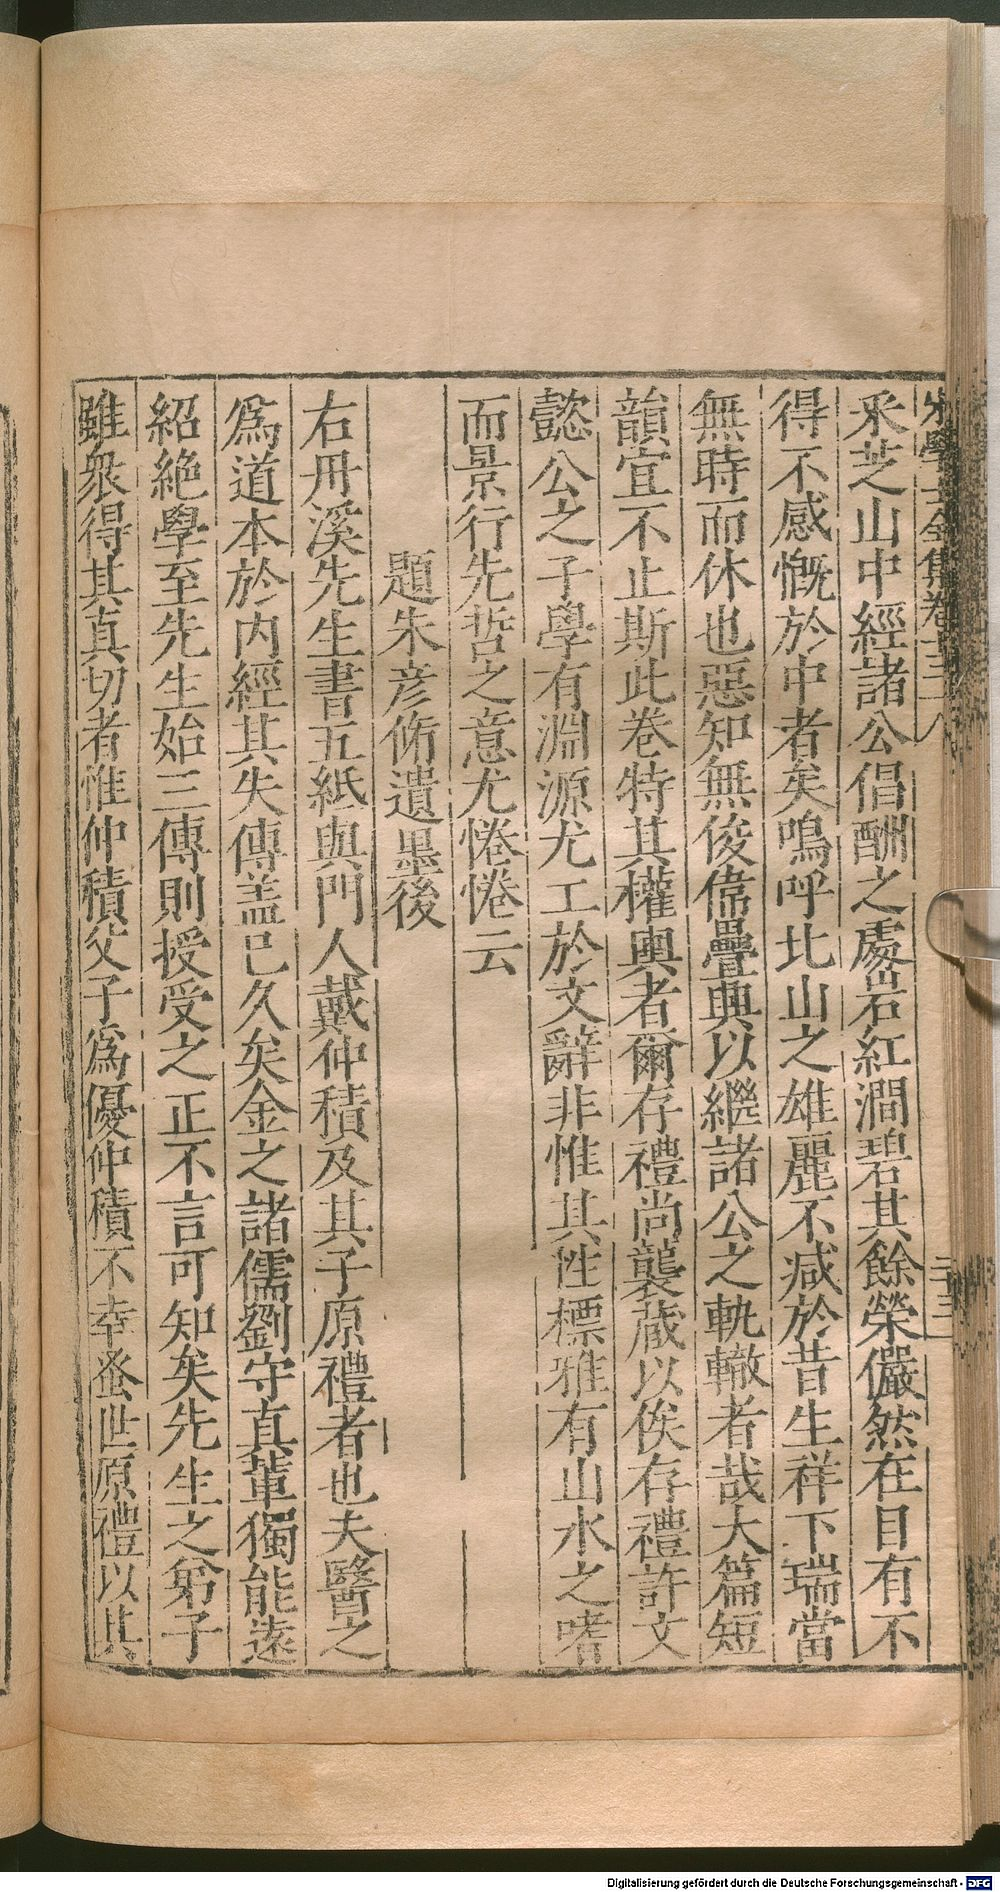 宋學士全集卷十三 八 二十三
釆芝山中經諸公倡酬之處岩紅澗碧其餘榮儼然在目有不
得不感慨於中者矣嗚呼北山之雄麗不减於昔生祥下瑞當
無時而休也惡知無俊偉疊興以繼諸公之軌轍者哉大篇短
韻宜不止斯此卷特其權輿者爾存禮尚襲蔵以俟存禮許文
懿公之子學有淵源尤工於文辭非惟其性標雅有山水之嗜
而景行先哲之意尤惓惓云
題朱彦脩遺墨後
右丹溪先生書五紙與門人戴仲積及其子原禮者也夫醫之
爲道本於内經其失傳盖已久矣金之諸儒劉守真軰獨能遠
紹絶學至先生始三傳則授受之正不言可知矣先生之弟子
雖衆得其真切者惟仲積父子爲優仲積不幸蚤世原禮以其
Digitalisierung gefördert durch die Deutsche Forschungsgemeinschaft - DFG